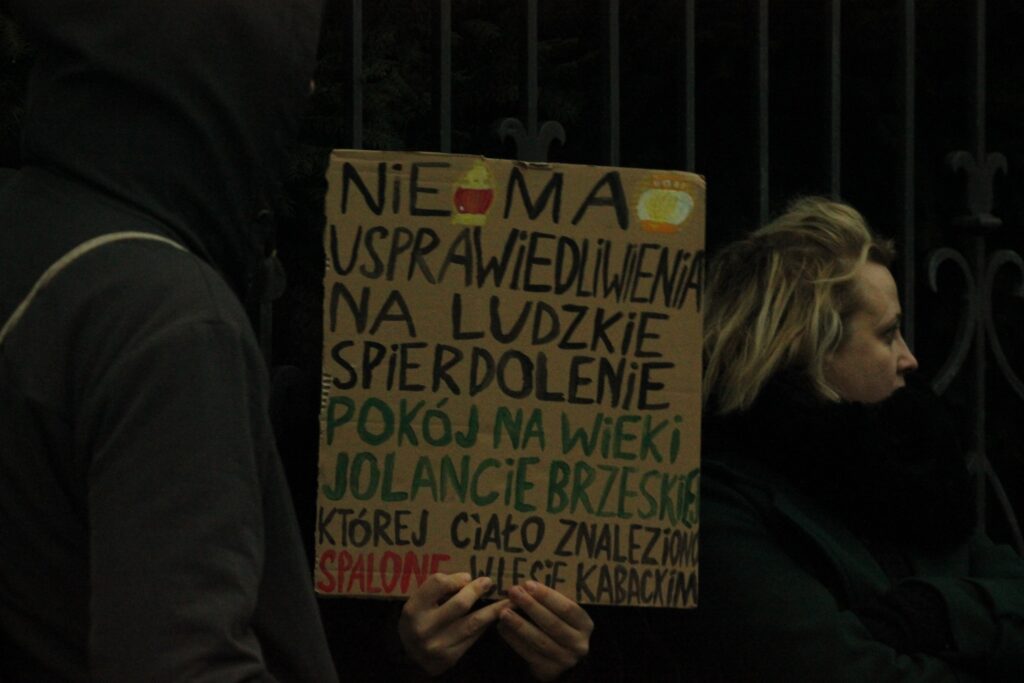 NiE MA
USPRAWiEDLiWiENiA
NA LUDZKIE
SPiERDOLENiE
POKÓJ NA WiEKi
JOLANCiE BRZESKiEJ
KTÓREJ CiAŁO ZNALEZIONO
SPALONE W LESiE KABACKIM